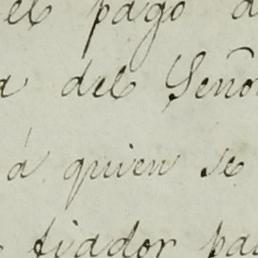 el pago a
a del Señor
á quien se
fiador pa